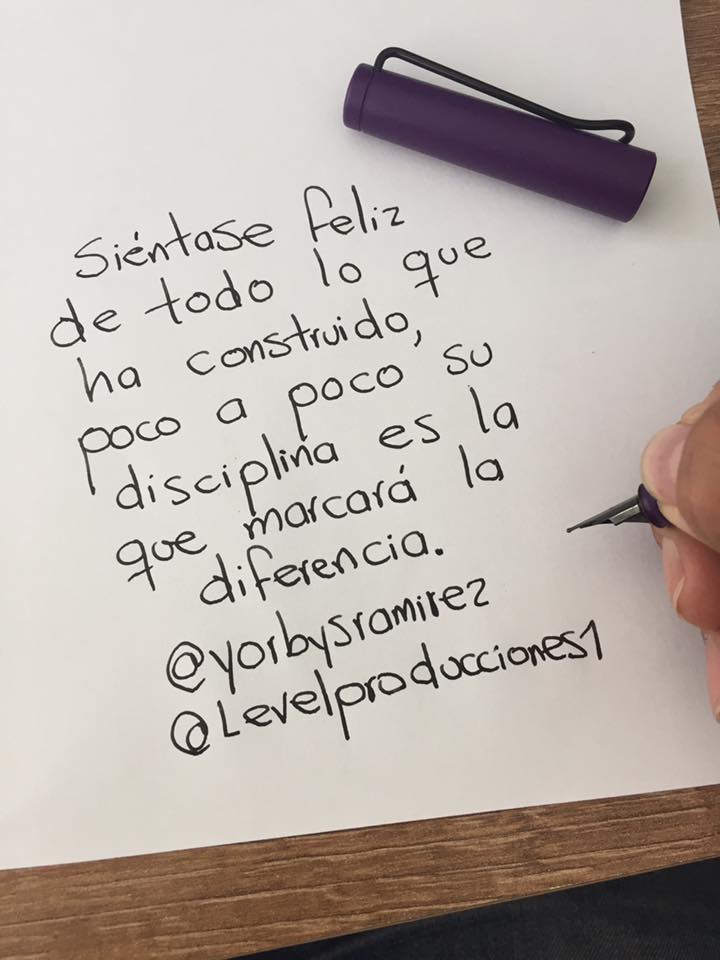 Siéntase feliz
de todo lo que
ha construido,
poco a poco su
disciplina es la
que marcará la
diferencia.
@yorbysramirez
@Levelproducciones1